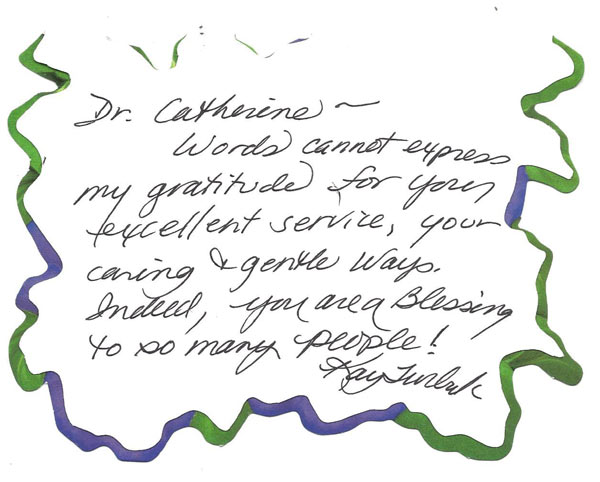 Dr. Catherine ~
Words cannot express
my gratitude for your
excellent service, your
caring & gentle ways.
Indeed, you are a Blessing
to so many people!
Kay